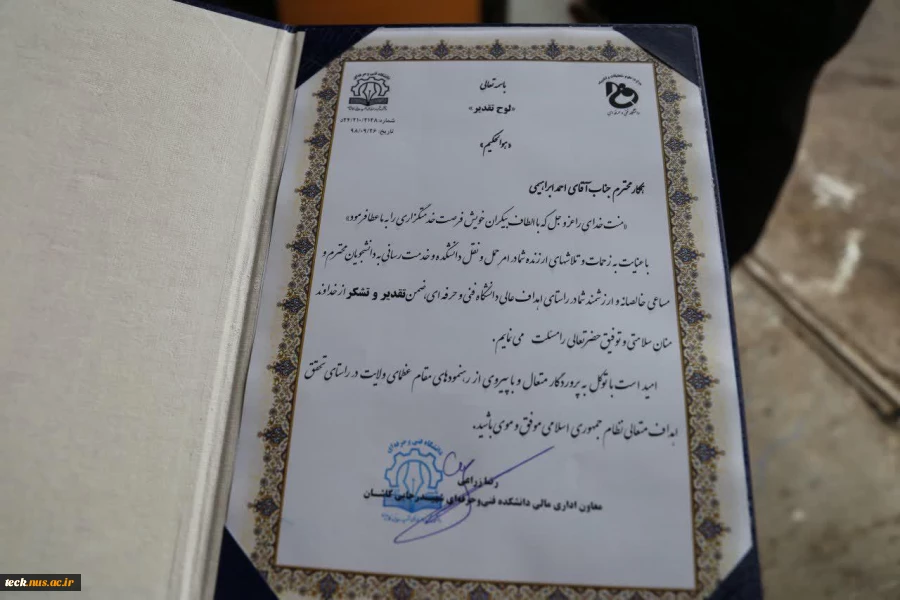 باسمه تعالی
«لوح تقدیر»
شماره: ۵۳۲/۲۱۰/۲۱۲۸
تاریخ: ۹۸/۰۹/۲۶
«هوالحکیم»
همکار محترم جناب آقای احمد ابراهیمی
«منت خدای را عزوجل که با الطاف بیکران خویش فرصت خدمتگزاری را به ما عطا فرمود»
با عنایت به زحمات و تلاشهای ارزنده شما در امر حمل و نقل دانشکده و خدمت رسانی به دانشجویان محترم و
مساعی خالصانه و ارزشمند شما در راستای اهداف عالی دانشگاه فنی و حرفه ای، ضمن تقدیر و تشکر از خداوند
منان سلامتی و توفیق حضرتعالی را مسئلت می نمایم.
امید است با توکل به پروردگار متعال و با پیروی از رهنمودهای مقام عظمای ولایت در راستای تحقق
اهداف متعالی نظام جمهوری اسلامی موفق و موی باشید.
دانشگاه فنی و حرفه‌ای
رضا زراعی
معاون اداری مالی دانشکده فنی‌وحرفه‌ای شهیدرجایی کاشان
teck.nus.ac.ir